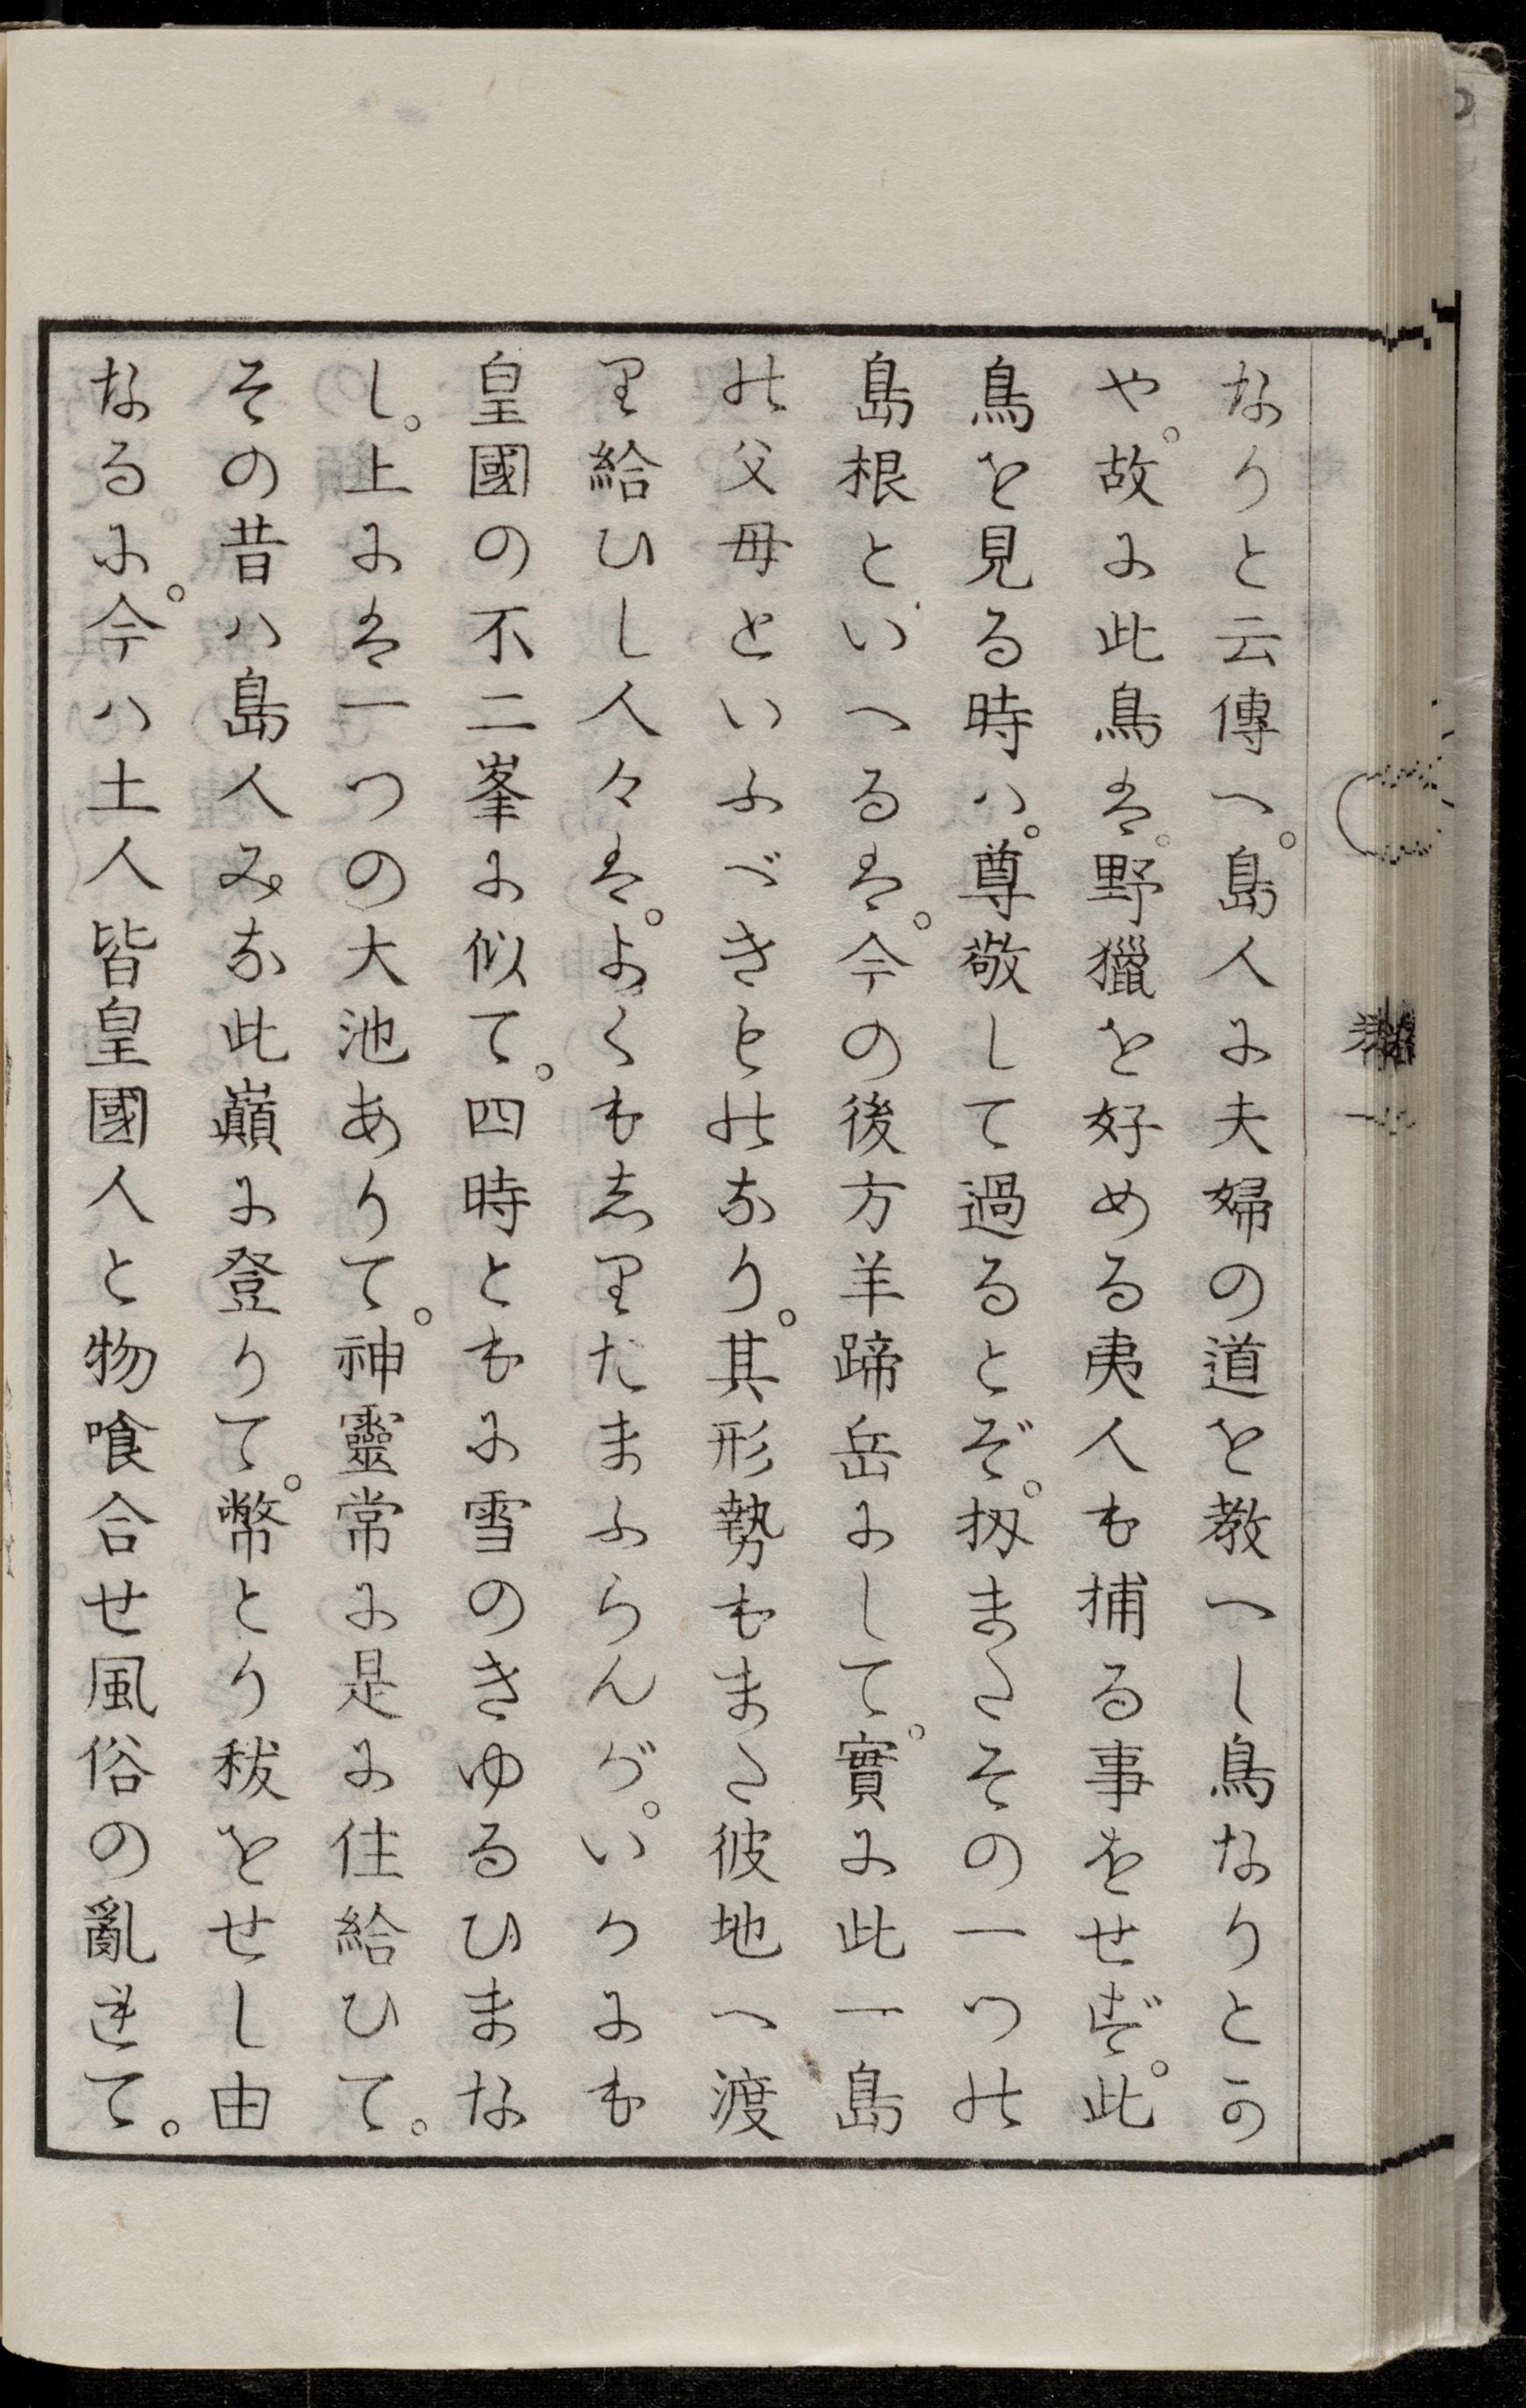 なりと云傳へ。島人に夫婦の道を教へし鳥なりとか
や。故に此鳥は。野獵を好める夷人も捕る事をせず。此
鳥を見る時ハ。尊敬して過るとぞ。扨またその一つの
島根といへるは。今の後方羊蹄岳にして。實に此一島
の父母といふべきものなり。其形勢もまた彼地へ渡
り給ひし人々は。よくもしりたまふらんが。いかにも
皇國の不二峯に似て。四時ともに雪のきゆるひまな
し。上には一つの大池ありて。神靈常に是に住給ひて。
その昔ハ島人みな此巓に登りて。幣とり秡をせし由
なるに。今ハ土人皆皇國人と物喰合せ風俗の亂れて。